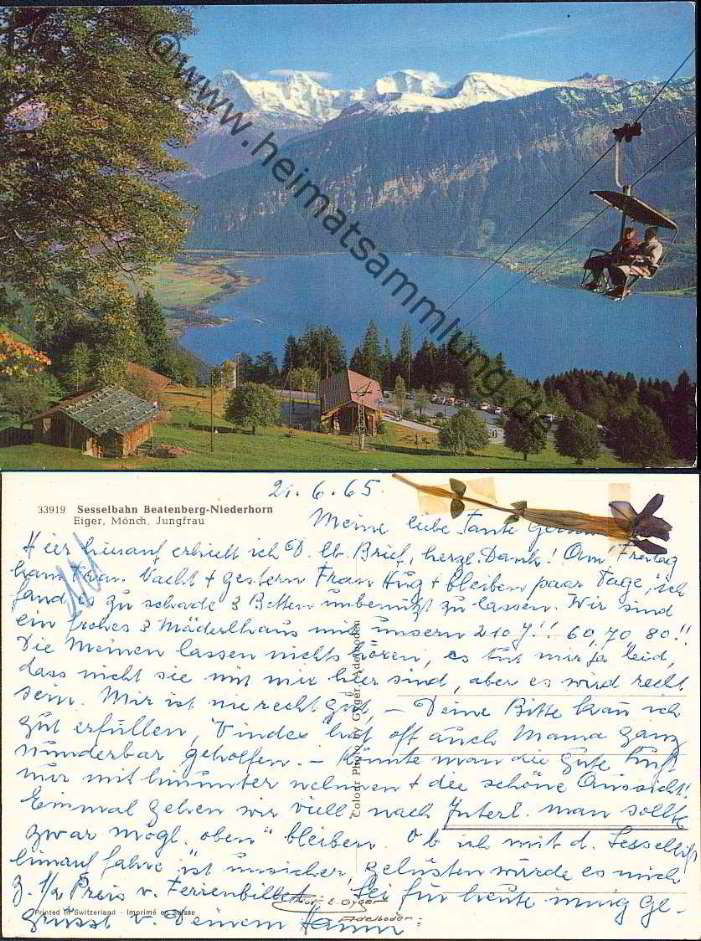 ©www.heimatsammlung.de
21.6.65.
33919 Sesselbahn Beatenberg-Niederhorn
Eiger, Mönch, Jungfrau
Meine liebe Tante
Hier hinauf erhielt ich D. lb. Brief, herzl. Dank! Am Freitag
kam Frau Vacht + gestern Frau Hug + bleiben paar Tage, ich
fand es zu schade 3 Betten unbenutzt zu lassen. Wir sind
ein frohes 3 Mäderlhaus mit unsern 210 J!! 60, 70, 80!!
Die Meinen lassen nichts hören, es tut mir ja leid,
dass nicht sie mit mir hier sind, aber es wird recht
sein. Mir ist nie recht gut, – Deine Bitte kann ich
gut erfüllen, hat oft auch Mama ganz
wunderbar geholfen. – Könnte man die gute Luft
nur mit hinunter nehmen + die schöne Aussicht!
Einmal gehen wir viell. nach Interl. man sollte
zwar mögl. "oben" bleiben. Ob ich mit d. Sessellift
hinauf fahre ist unsicher, gelüsten würde es mich
z. 1/2 Preis v. Ferienbillet. Sei für heute innig ge-
grüsst v. Deinem
Colour Photo by Gyger, Adelboden
Printed in Switzerland · Imprimé en Suisse
Adelboden